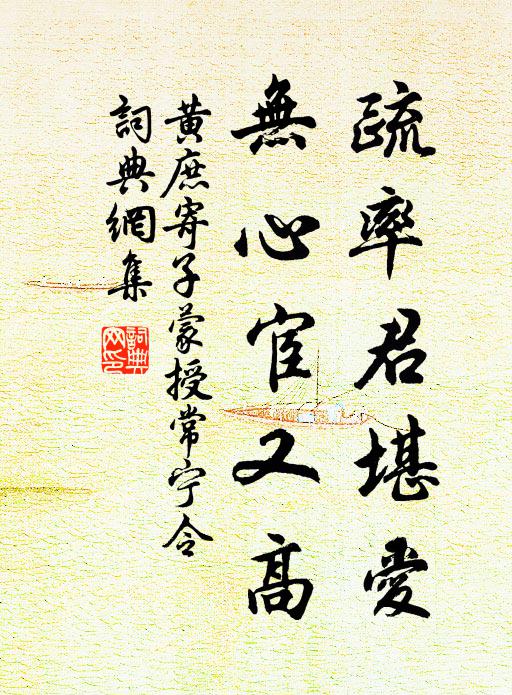 疏率君堪愛
無心宦又高
黃庶寄子蒙授常宁令
詞典網集
詞典
网印